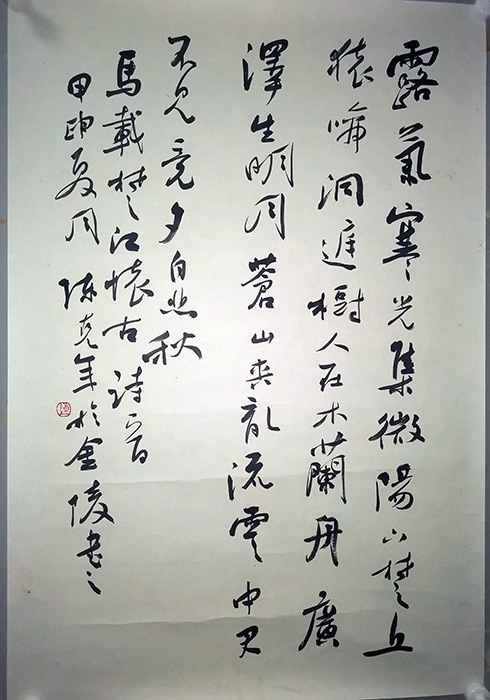 露氣寒光集微陽下楚丘
猿啼洞庭樹人在木蘭舟廣
澤生明月蒼山夾亂流雲中君
不見竟夕自悲秋
馬載楚江懷古詩一首
甲申夏月 陳克年於金陵書之